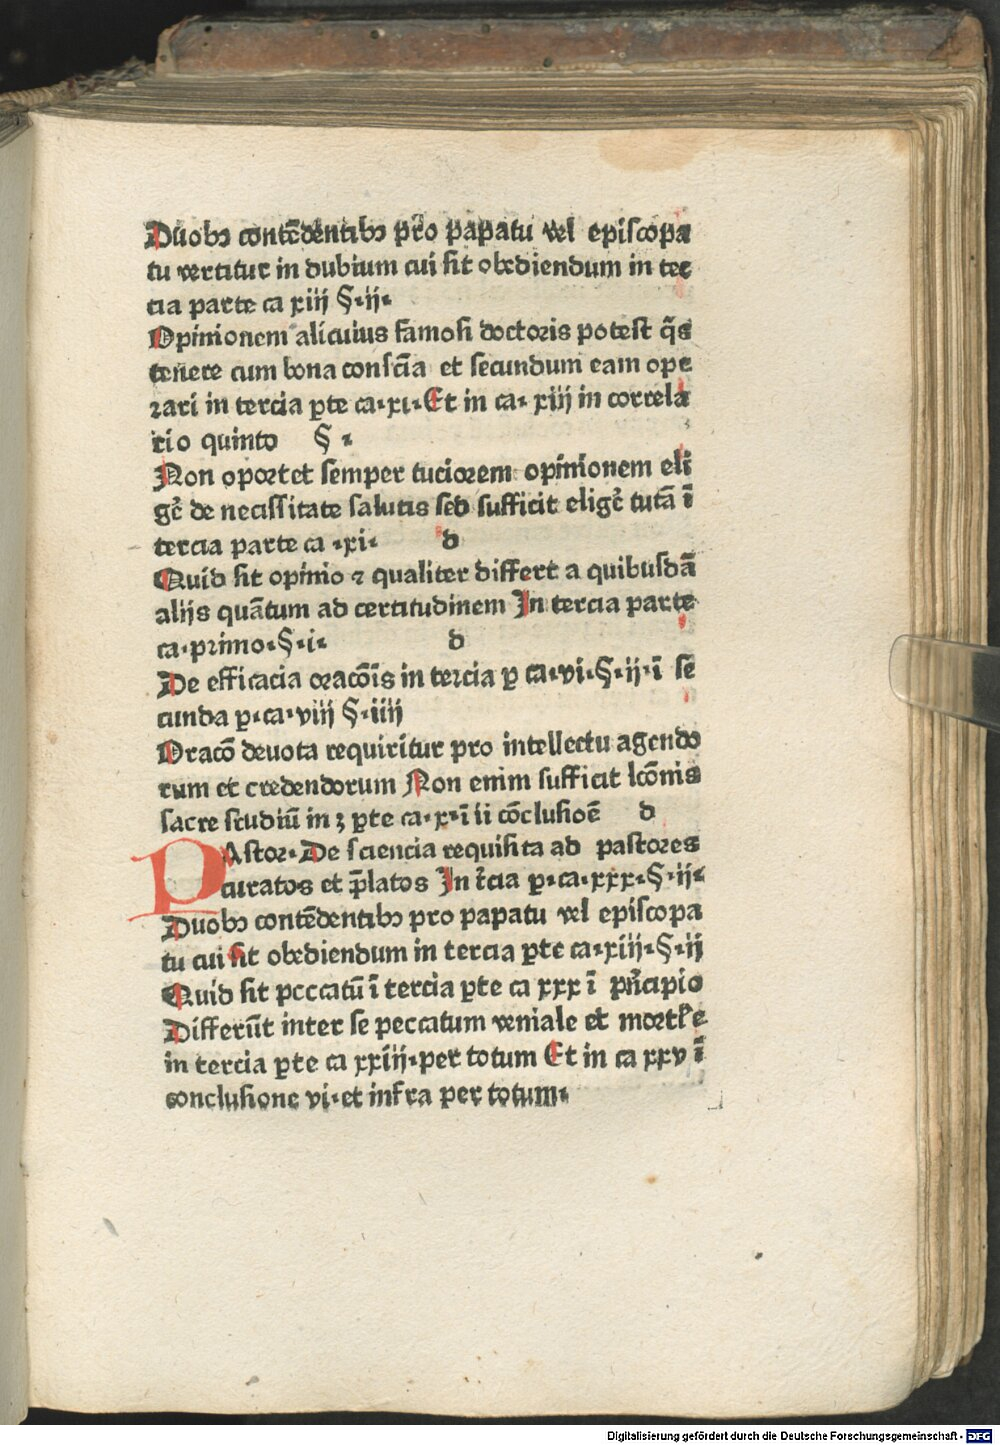 Duobꝯ contēdentibꝯ pro papatu vel episcopa
tu vertitur in dubium cui sit obediendum in ter
cia parte ca xiij §·ij·
Opinionem alicuius famosi doctoris potest q̄s
tenere cum bona consciā et secundum eam ope
rari in tercia ꝑte ca·xi·Et in ca· xiij in correla
rio quinto §·
Non oportet semper tuciorem opinionem eli
gē de necessitate salutis sed sufficit eligē tutā ī
tercia parte ca·xi· d
Quid sit opinio ⁊ qualiter differt a quibusdā
alijs quātum ad certitudinem In tercia parte
ca·primo·§·i· d
De efficacia oracōis in tercia ꝑ ca·vi·§·ij·ī se
cunda ꝑ·ca·viij §·iiij
Oracō devota requiritur pro intellectu agendo
rum et credendorum Non enim sufficit lcōnis
sacre studiū in ʒ ꝑte ca·x·ī ii cōclusioē d
PAstor·De sciencia requisita ad pastores
curatos et p̄latos In t̄cia ꝑ·ca·xxx·§·ij·
Duobꝯ contēdentibꝯ pro papatu vel episcopa
tu cui sit obediendum in tercia ꝑte ca·xiij·§·ij
Quid sit peccatū ī tercia ꝑte ca xxx ī prīcipio
Differūt inter se peccatum veniale et mortłe
in tercia ꝑte ca xxiij·per totum Et in ca xxv ī
conclusione vi·et infra per totum·
Digitalisierung gefördert durch die Deutsche Forschungsgemeinschaft - DFG